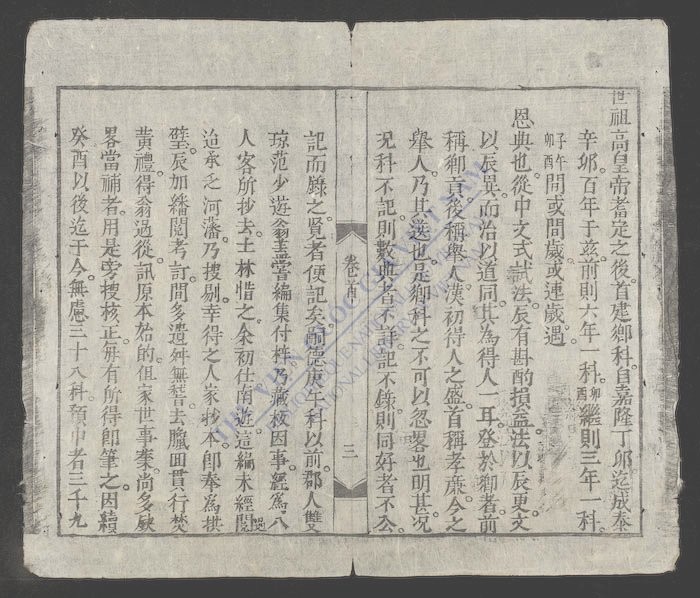 世祖高皇帝耆定之後首建鄉科自嘉隆丁卯迄成泰
辛卯百年于玆前則六年一科卯酉繼則三年一科
子午卯酉間或間歲或連歲遇
恩典也從中文式試法辰有斟酌損益法以辰更文
以辰異而治以道同其為得人一耳發於鄉者前
稱鄉貢後稱舉人漢初得人之盛首稱孝廉今之
舉人乃其選也是鄉科之不可以忽畧也明甚况
況科不記則數典者不詳記不錄則同好者不公
卷首
三
記而錄之賢者便記矣嗣德庚午科以前郡人雙
琼范少遊翁嘗編集付梓乃藏板因事經為八
人客所抄去士林惜之余初仕南遊這編未經閱
迨承乏河藩乃搜剔幸得之人家抄本卽奉為拱
璧辰加繙閱考訂間多遺舛無暬去臘回貫行焚
黃禮得翁過從訊原本始的但家世事槩尚多缺
畧當補者用是旁搜核正毎有所得卽筆之因續
癸酉以後迄于今無慮三十八科預中者三千九
THƯ VIỆN QUỐC GIA VIỆT NAM